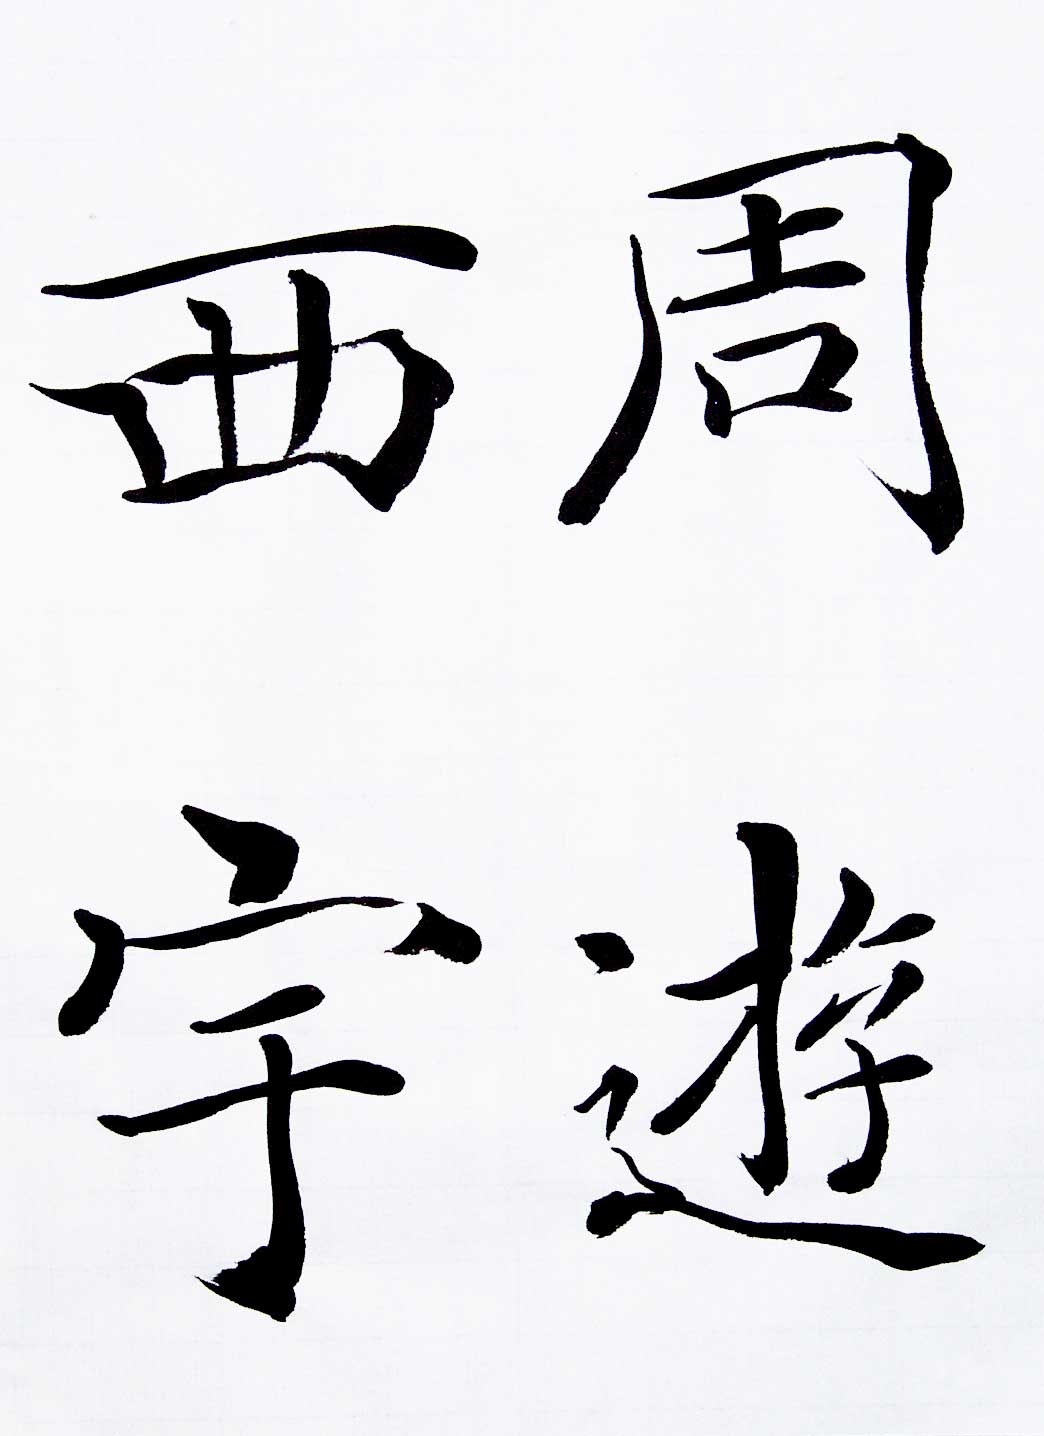 周遊
西宇